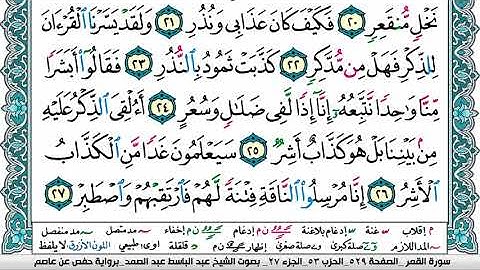 نَخْلٍ مُّنقَعِرٍ ٢٠ فَكَيْفَ كَانَ عَذَابِى وَنُذُرِ ٢١ وَلَقَدْ يَسَّرْنَا ٱلْقُرْءَانَ
لِلذِّكْرِ فَهَلْ مِن مُّدَّكِرٍ ٢٢ كَذَّبَتْ ثَمُودُ بِٱلنُّذُرِ ٢٣ فَقَالُوٓا۟ أَبَشَرًا
مِّنَّا وَٰحِدًا نَّتَّبِعُهُۥٓ إِنَّآ إِذًا لَّفِى ضَلَٰلٍ وَسُعُرٍ ٢٤ أَءُلْقِىَ ٱلذِّكْرُ عَلَيْهِ
مِنۢ بَيْنِنَا بَلْ هُوَ كَذَّابٌ أَشِرٌ ٢٥ سَيَعْلَمُونَ غَدًا مَّنِ ٱلْكَذَّابُ
ٱلْأَشِرُ ٢٦ إِنَّا مُرْسِلُوا۟ ٱلنَّاقَةِ فِتْنَةً لَّهُمْ فَٱرْتَقِبْهُمْ وَٱصْطَبِرْ ٢٧
م إقلاب غنة إدغام بلاغنة ن م إدغام ن م إخفاء مد متصل مد منفصل
المد اللازم صلة كبرى صلة صغرى إظهار ن م قلقلة اوى: طبيعي اللون الأزرق: لا يلفظ
سورة القمر _ الصفحة ٥٢٩ _ الحزب ٥٣ _ الجزء ٢٧ _ بصوت الشيخ عبد الباسط عبد الصمد _ برواية حفص عن عاصم